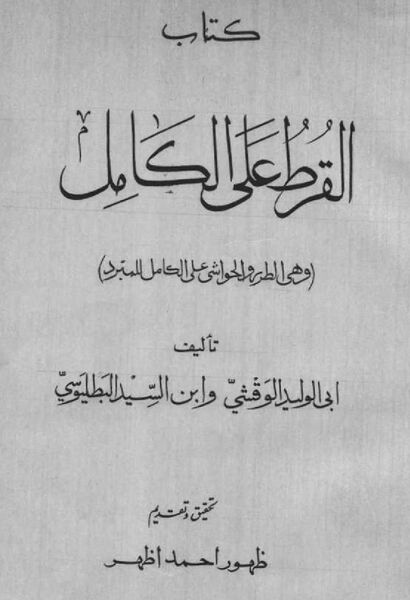 كتاب
القُرطُ عَلَى الكَامِل
(وهى الطرر والحواشى على الكامل للمبرد)
تأليف
ابى الوليد الوَقشيّ وابن السِّيْد البَطليَوسيّ
تحقيق وتقديم
ظهور احمد اظهر